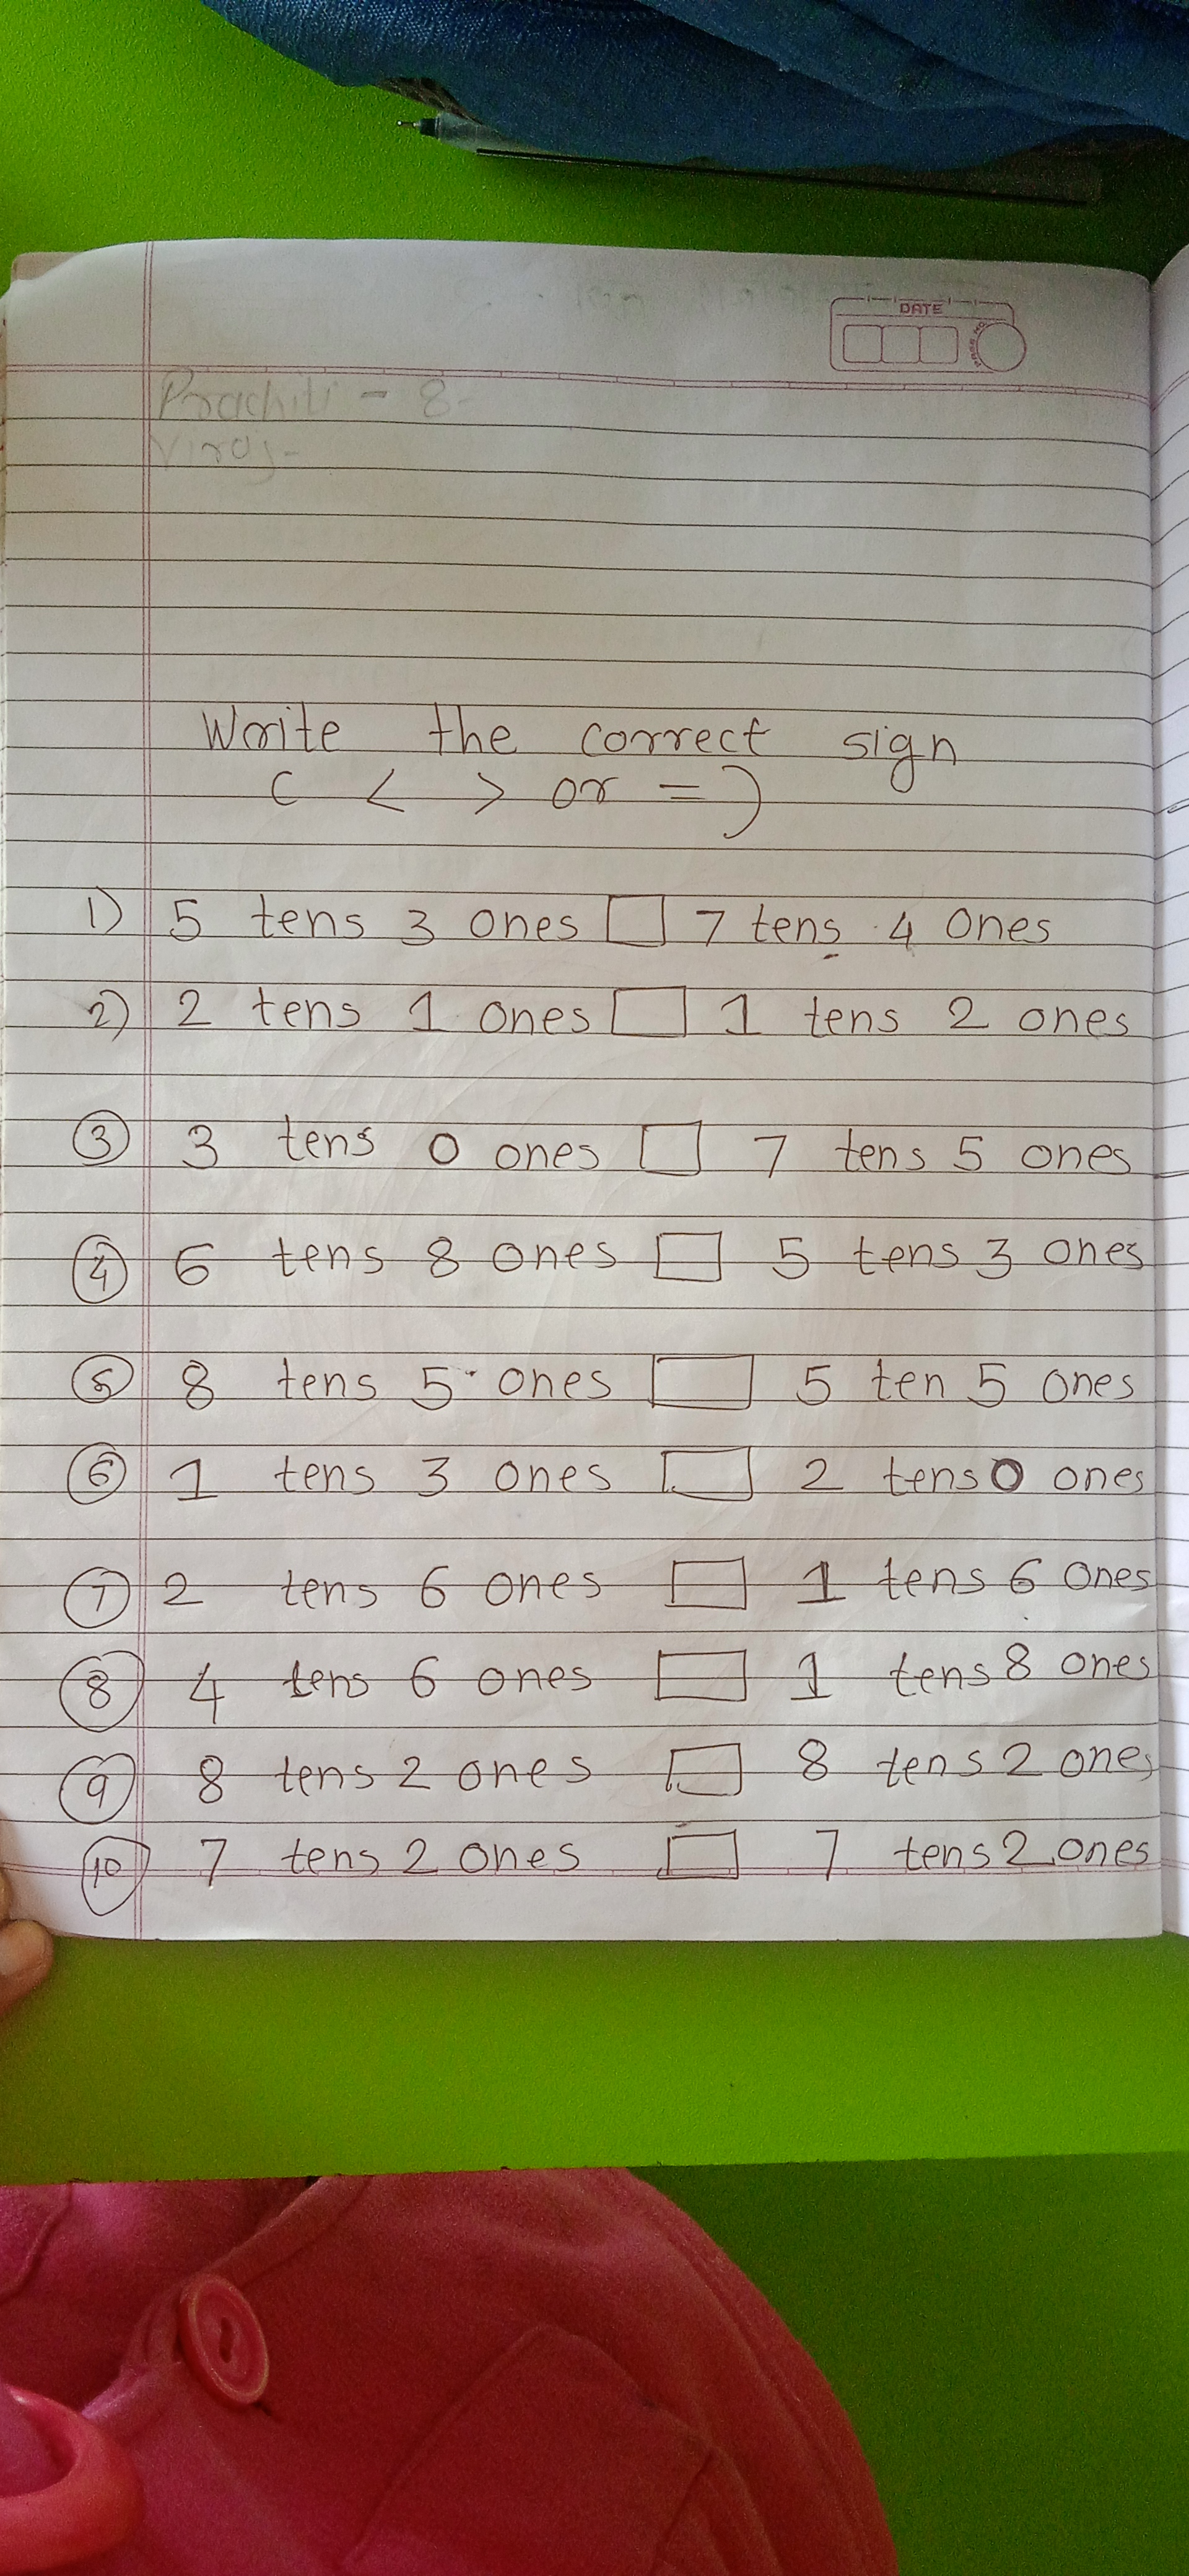 DATE
PAGE NO.
Prachiti - 8-
Viraj -
Write the correct sign
( < > or = )
1) 5 tens 3 ones □ 7 tens 4 ones
2) 2 tens 1 ones □ 1 tens 2 ones
③ 3 tens 0 ones □ 7 tens 5 ones
④ 6 tens 8 ones □ 5 tens 3 ones
⑤ 8 tens 5 ones □ 5 ten 5 ones
⑥ 1 tens 3 ones □ 2 tens 0 ones
⑦ 2 tens 6 ones □ 1 tens 6 ones
⑧ 4 tens 6 ones □ 1 tens 8 ones
⑨ 8 tens 2 ones □ 8 tens 2 ones
⑩ 7 tens 2 ones □ 7 tens 2 ones